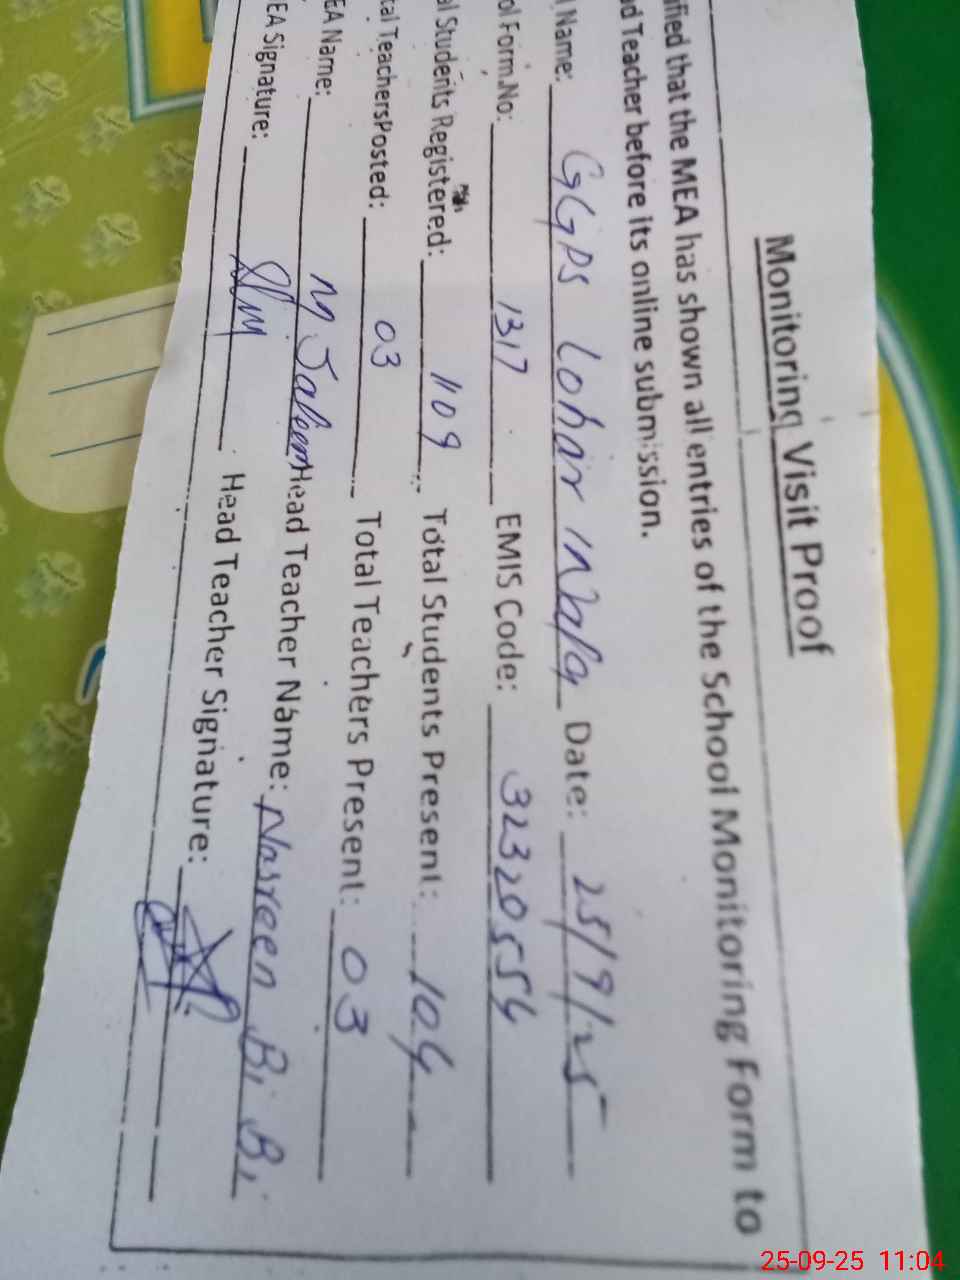 Monitoring Visit Proof
that the MEA has shown all entries of the School Monitoring Form to
Teacher before its online submission.
Name: GGPS Lohar Inwala Date: 25/9/25
Form.No: 1317 EMIS Code: 32320554
Students Registered: 1109 Total Students Present: 104
TeachersPosted: 03 Total Teachers Present: 03
Name: M Saleem Head Teacher Name: Nasreen Bi Bi
Signature: Head Teacher Signature:
25-09-25 11:04